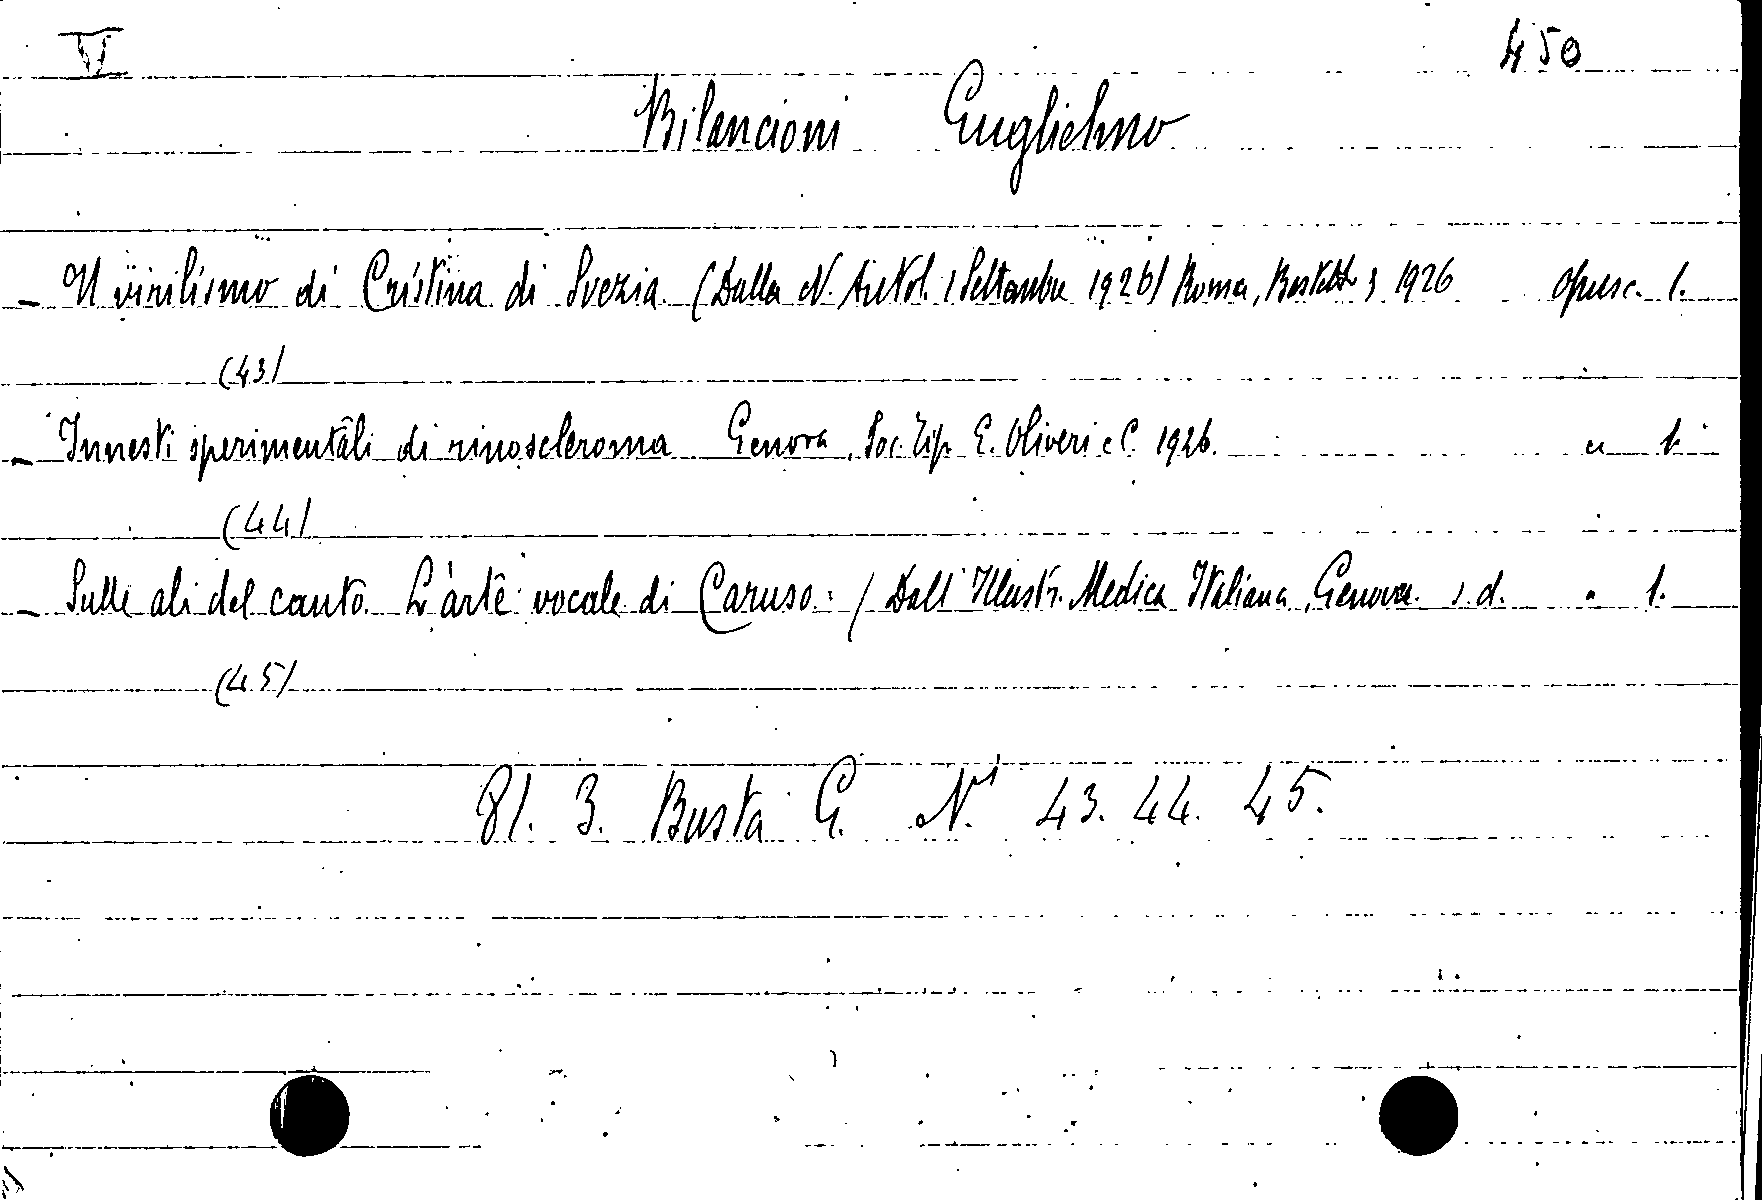 VI 450
Bilancioni Guglielmo
- Il virilismo di Cristina di Svezia (Dalla N. Antol. 1 Settembre 1926) Roma, 1926 opusc. 1.
(43)
- Innesti sperimentali di rinoscleroma Genova, Soc. Tip. E. Oliveri e C. 1926. " 1.
(44)
- Sulle ali del canto. L'arte vocale di Caruso. (Dall'Illustr. Medica Italiana, Genova. s. d. " 1.
(45)
81. 3. Busta G. Ni 43. 44. 45.